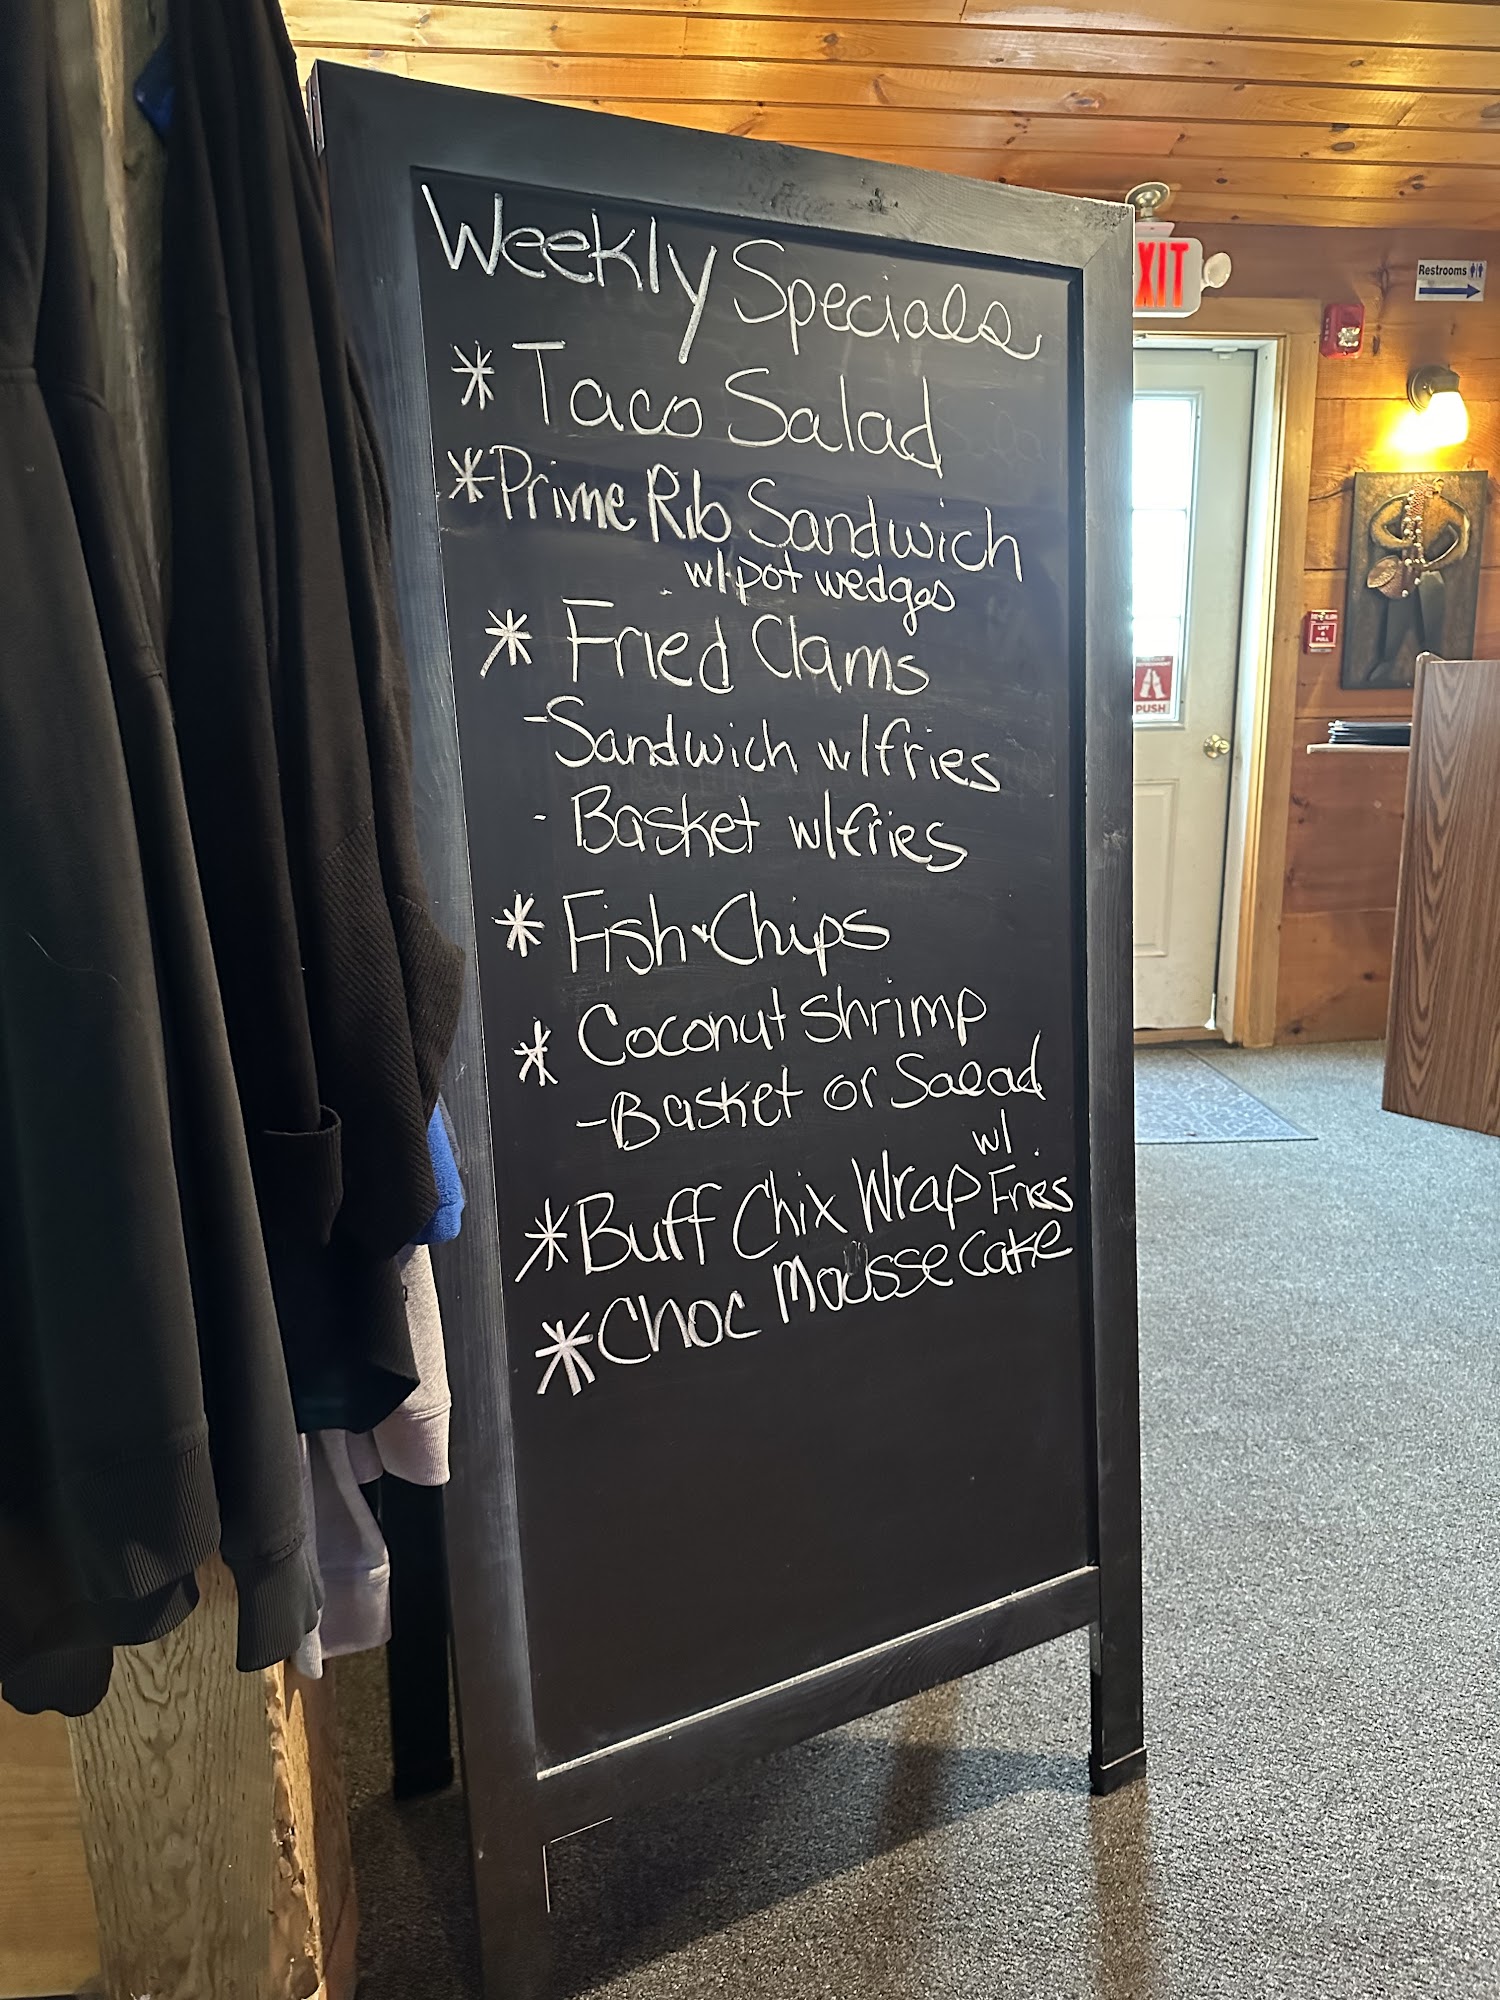 Weekly Specials
* Taco Salad
* Prime Rib Sandwich
w/pot wedges
* Fried Clams
- Sandwich w/fries
- Basket w/fries
* Fish & Chips
* Coconut Shrimp
- Basket or Salad
* Buff Chix Wrap w/ Fries
* Choc Mousse Cake
EXIT
Restrooms
PUSH